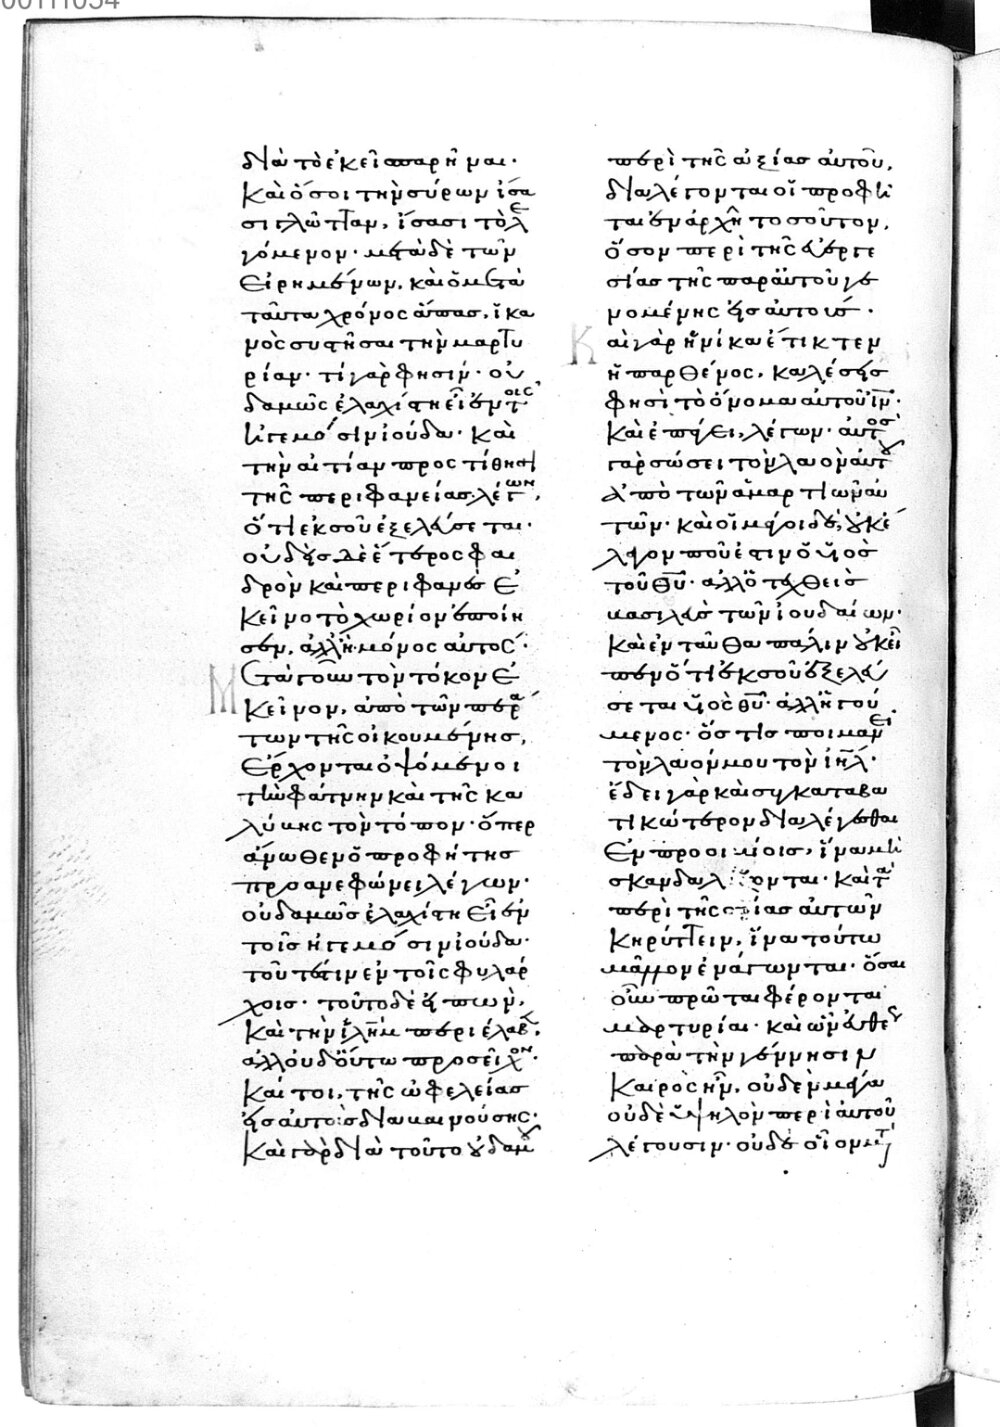 00111054
διὰ τὸ ἐκεῖ παρῆναι·
Καὶ ὅσοι τὴν σύρων ἴσα
σι γλῶτταν, ἴσασι τὸ λε
γόμενον· μετὰ δὲ τῶν
εἰρημένων, καὶ ὁ μετὰ
ταῦτα χρόνος ἅπας, ἱκα
νὸς συστῆσαι τὴν μαρτυ
ρίαν· τί γάρ φησιν· οὐ
δαμῶς ἐλαχίστη εἶ ἐν τοῖς
ἡγεμόσιν ἰούδα· Καὶ
τὴν αἰτίαν προστίθησι
τῆς περιφανείας λέγων,
ὅτι ἐκ σοῦ ἐξελεύσεται·
οὐδεὶς δὲ ἕτερος φαι
δρὸν καὶ περιφανὲς ἐ
κεῖνο τὸ χωρίον ἐποίη
σεν, ἀλλ' ἢ μόνος αὐτός·
Μετὰ γοῦν τὸν τόκον ἐ
κεῖνον, ἀπὸ τῶν περά
των τῆς οἰκουμένης,
ἔρχονται ὀψόμενοι
τὴν φάτνην καὶ τῆς κα
λύβης τὸν τόπον· ὅπερ
ἄνωθεν ὁ προφήτης
προανεφώνει λέγων·
οὐδαμῶς ἐλαχίστη εἶ ἐν
τοῖς ἡγεμόσιν ἰούδα·
τουτέστιν ἐν τοῖς φυλάρ
χοις· τοῦτο δὲ εἰπὼν,
καὶ τὴν ἱλῆμ περιέλαβεν·
ἀλλ' οὐδ' οὕτω προσεῖχον·
καίτοι, τῆς ὠφελείας
εἰς αὐτοὺς διαβαινούσης·
Καὶ γὰρ διὰ τοῦτο οὐδαμοῦ
περὶ τῆς ἀξίας αὐτοῦ,
διαλέγονται οἱ προφῆ
ται ἐν ἀρχῆ τοσοῦτον,
ὅσον περὶ τῆς εὐεργε
σίας τῆς παρ' αὐτοῦ γε
νομένης εἰς αὐτούς·
Καὶ γὰρ ἡνίκα ἔτικτεν
ἡ παρθένος, καλέσεις
φησὶ τὸ ὄνομα αὐτοῦ ἰν̅·
Καὶ ἐπάγει, λέγων· αὐτὸς
γὰρ σώσει τὸν λαὸν αὐτοῦ
ἀπὸ τῶν ἁμαρτιῶν αὐ
τῶν· καὶ οἱ μάγοι δὲ, οὐκ ἔ
λεγον ποῦ ἐστιν ὁ υἱὸς
τοῦ θυ̅· ἀλλ' ὁ τεχθεὶς
βασιλεὺς τῶν ἰουδαίων·
Καὶ ἐνταῦθα πάλιν οὐκ εἶ
πεν ὅτι ἐκ σοῦ ἐξελεύ
σεται υἱὸς θυ̅· ἀλλ' ἡγού
μενος· ὅστις ποιμανεῖ
τὸν λαόν μου τὸν ἰηλ̅·
ἔδει γὰρ καὶ συγκαταβα
τικώτερον διαλέγεσθαι
ἐν προοιμίοις, ἵνα μὴ
σκανδαλίζονται· καὶ τὰ
περὶ τῆς σρίας αὐτῶν
κηρύττειν, ἵνα τούτω
μᾶλλον ἐνάγωνται· ὅσαι
οὖν πρῶται φέρονται
μαρτυρίαι· καὶ ὧν εὐθέως
παρὰ τὴν γέννησιν
καιρὸς ἦν, οὐδὲν μέγα
οὐδὲ ὑψηλὸν περὶ αὐτοῦ
λέγουσιν· οὐδὲ οἷον